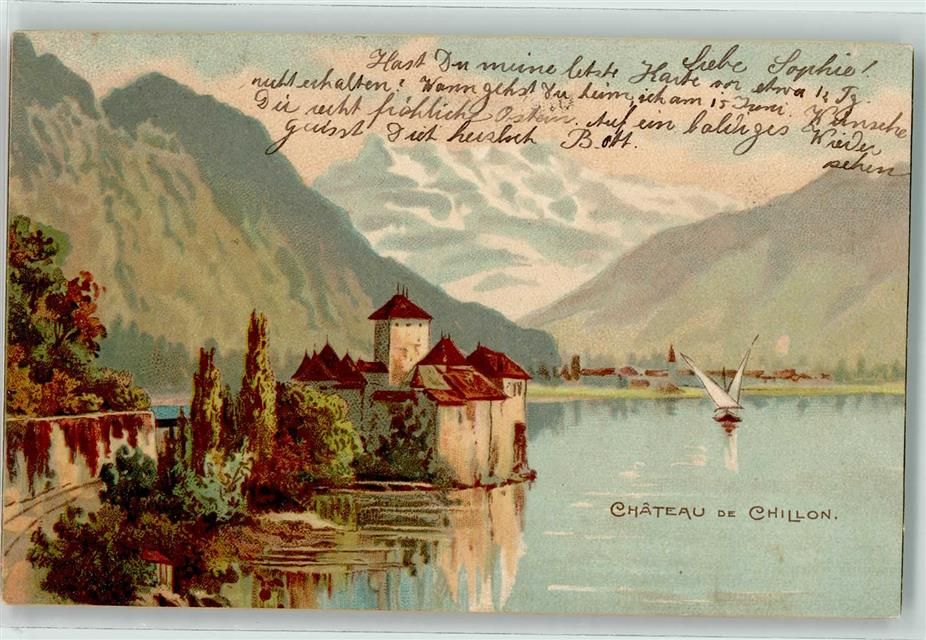 Liebe Sophie!
Hast Du meine letzte Karte vor etwa 1½ Tg.
nicht erhalten? Wann gehst Du heim, ich am 15 Juni. Wünsche
Dir recht fröhliche Ostern. Auf ein baldiges Wieder
sehen
Grüsst Dich herzlich B.ott.
CHÂTEAU DE CHILLON.